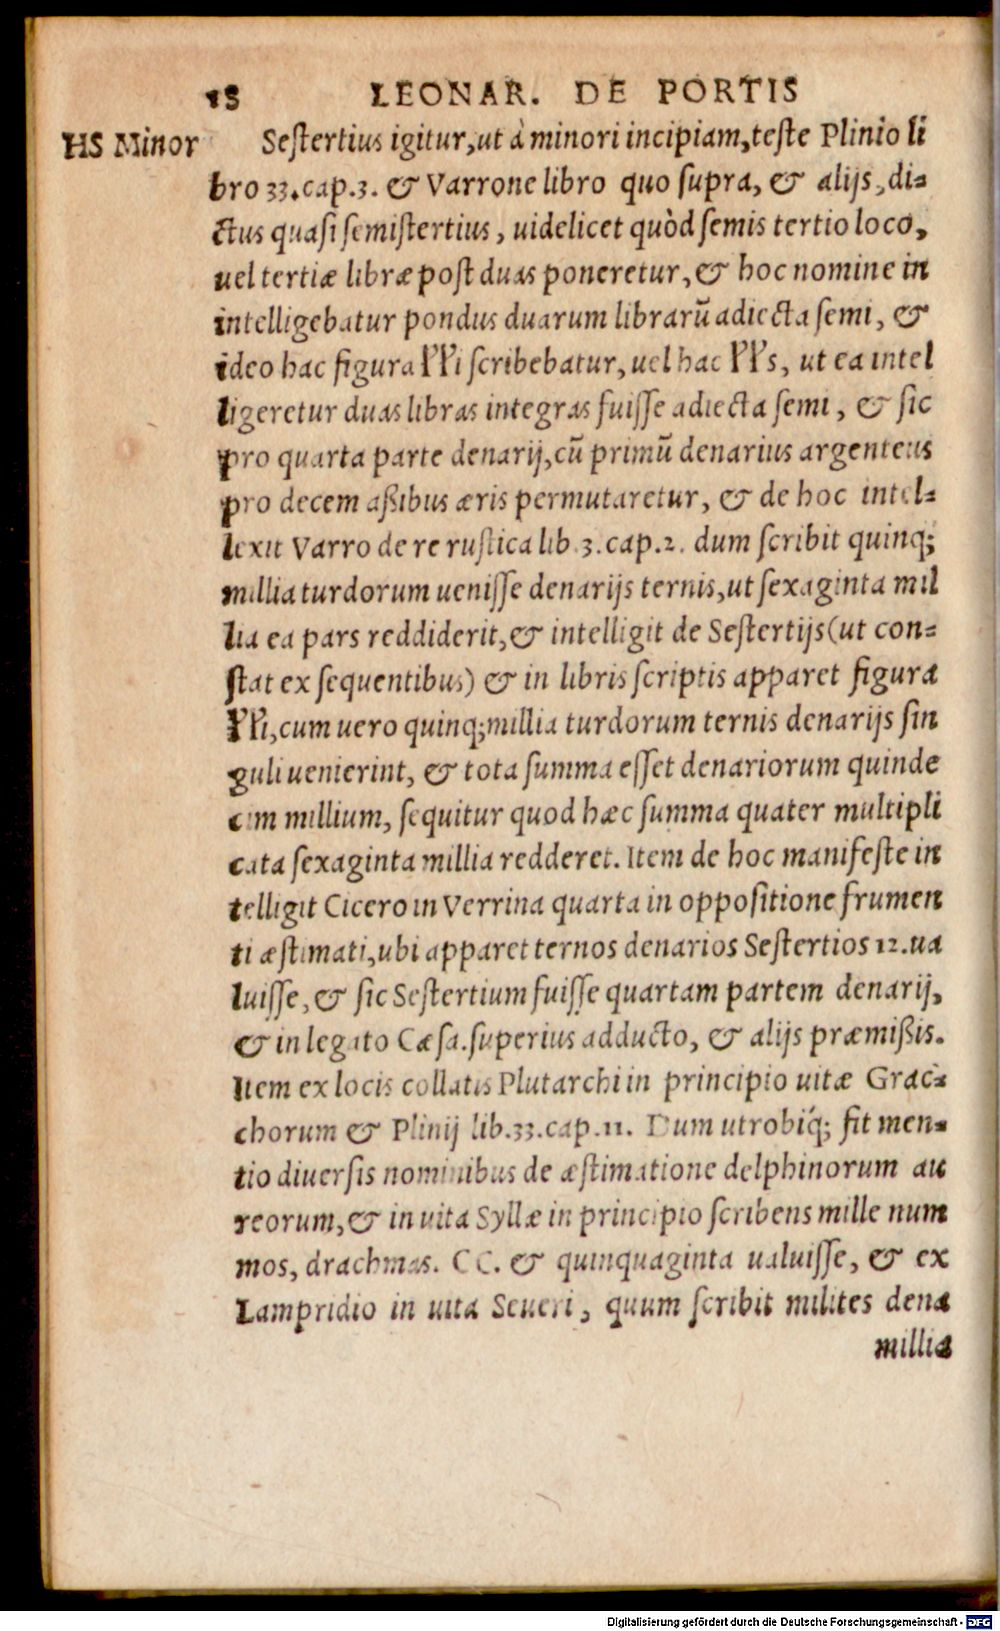 18 LEONAR. DE PORTIS
HS Minor
Sestertius igitur, ut à minori incipiam, teste Plinio li
bro 33. cap. 3. & Varrone libro quo supra, & alijs, di=
ctus quasi semistertius, uidelicet quòd semis tertio loco,
uel tertiæ libræ post duas poneretur, & hoc nomine in
intelligebatur pondus duarum librarũ adiecta semi, &
ideo hac figura scribebatur, uel hac ut ea intel
ligeretur duas libras integras fuisse adiecta semi, & sic
pro quarta parte denarij, cũ primũ denarius argenteus
pro decem aßibus æris permutaretur, & de hoc intel=
lexit Varro de re rustica lib. 3. cap. 2. dum scribit quinq;
millia turdorum uenisse denarijs ternis, ut sexaginta mil
lia ea pars reddiderit, & intelligit de Sestertijs (ut con=
stat ex sequentibus) & in libris scriptis apparet figura
cum uero quinq; millia turdorum ternis denarijs sin
guli uenierint, & tota summa esset denariorum quinde
cim millium, sequitur quod hæc summa quater multipli
cata sexaginta millia redderet. Item de hoc manifeste in
telligit Cicero in Verrina quarta in oppositione frumen
ti æstimati, ubi apparet ternos denarios Sestertios 12. ua
luisse, & sic Sestertium fuisse quartam partem denarij,
& in legato Cæsa. superius adducto, & alijs præmißis.
Item ex locis collatis Plutarchi in principio uitæ Grac=
chorum & Plinij lib. 33. cap. 11. Dum utrobiq́; fit men=
tio diuersis nominibus de æstimatione delphinorum au
reorum, & in uita Syllæ in principio scribens mille num
mos, drachmas. CC. & quinquaginta ualuisse, & ex
Lampridio in uita Seueri, quum scribit milites dena
millia
Digitalisierung gefördert durch die Deutsche Forschungsgemeinschaft - DFG